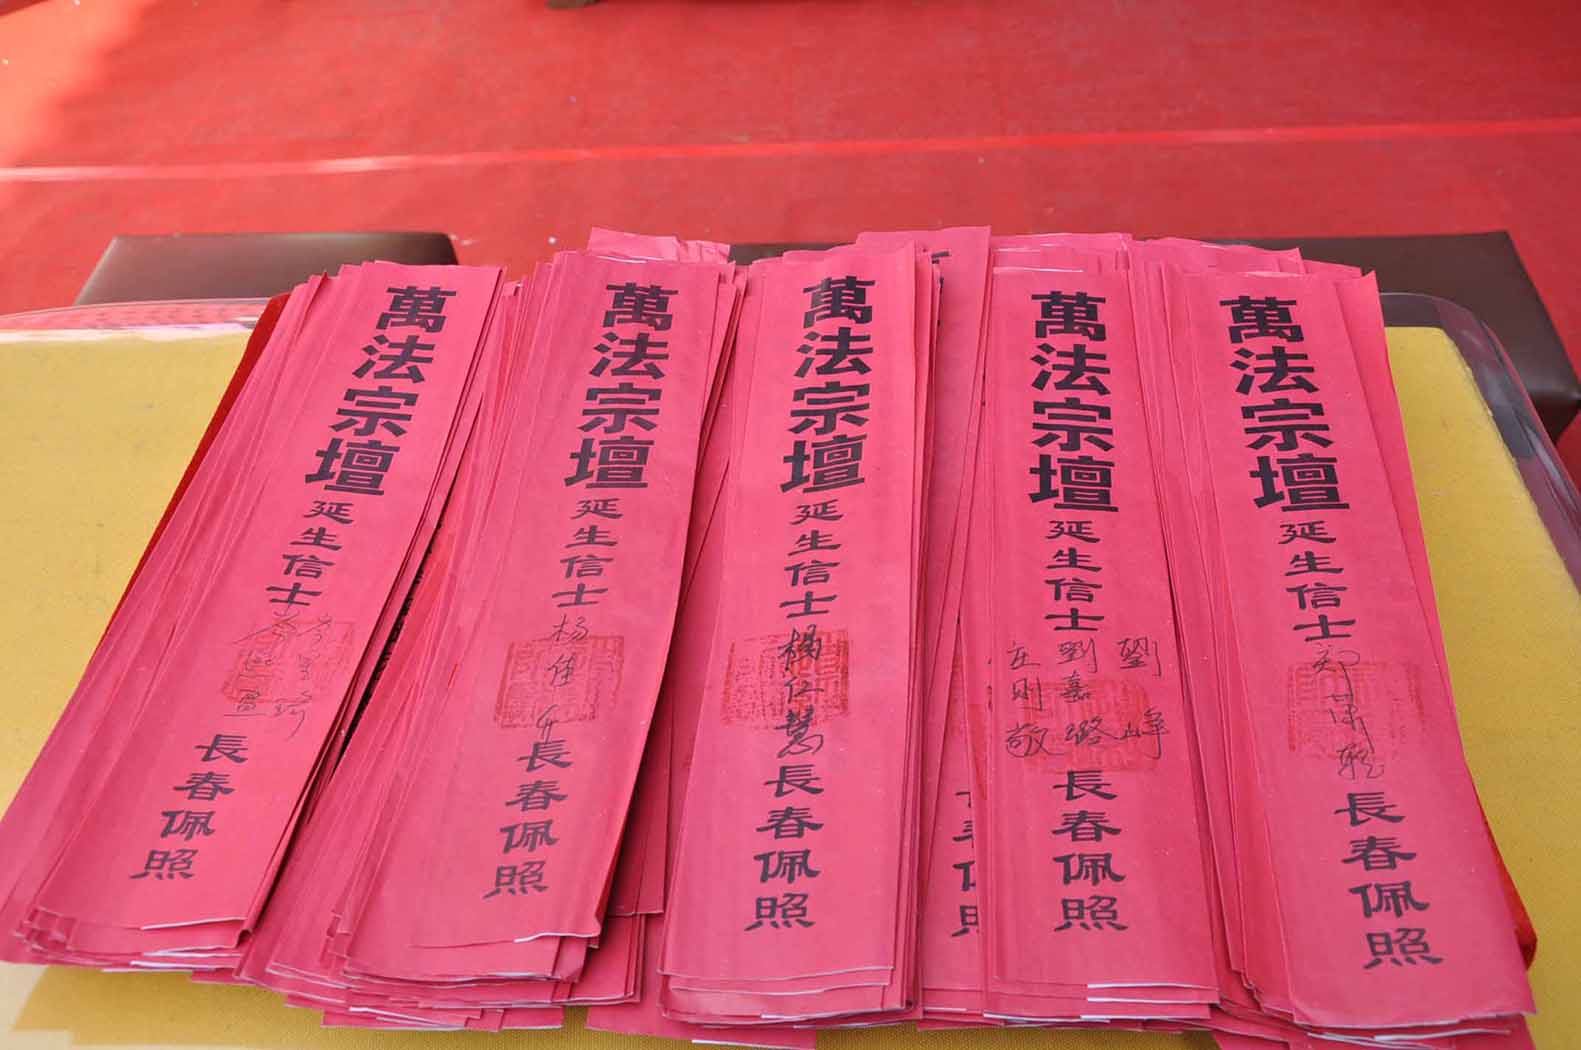 萬法宗壇
延生信士
長春佩照
萬法宗壇
延生信士
杨佳
長春佩照
萬法宗壇
延生信士
楊仁慧
長春佩照
萬法宗壇
延生信士
劉峰
劉嘉璐
庄則敬
長春佩照
萬法宗壇
延生信士
郑
長春佩照